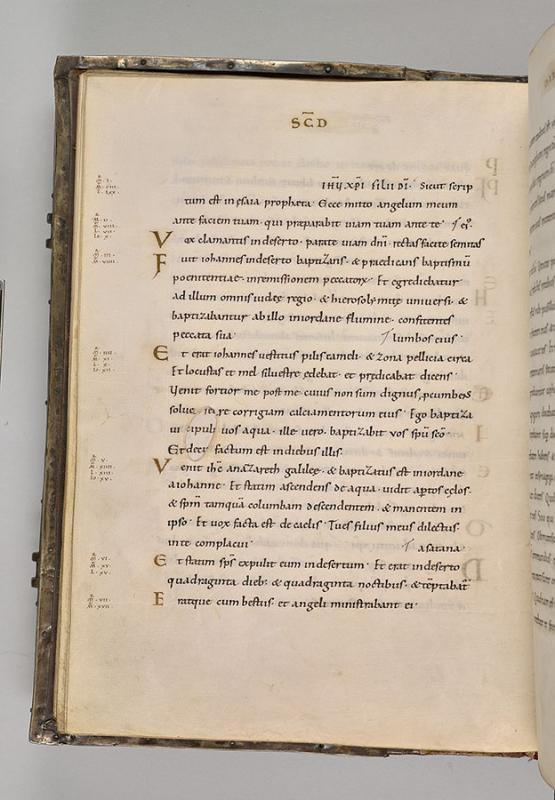 SCD
IHU XPI FILII DI. Sicut scrip
tum est in esaia propheta. Ecce mitto angelum meum
ante faciem tuam. qui praeparabit uiam tuam ante te
Vox clamantis in deserto. parate uiam dni. rectas facite semitas ei9.
Fuit iohannes in deserto baptizans. & praedicans baptismu
poenitentiae. in remissionem peccatorx. Et egrediebatur
ad illum omnis iudeae regio. & hierosolymitae uniuersi. &
baptizabantur ab illo in iordane flumine. confitentes
peccata sua.
Et erat iohannes uestitus pilis cameli. & zona pellicia circa lumbos eius.
Et locustas et mel siluestre edebat. et predicabat dicens.
Venit fortior me post me. cuius non sum dignus, pcumbens
soluere corrigiam calciamentorum eius. Ego baptiza
ui uos aqua. ille uero. baptizabit uos spu sco.
Et factum est in diebus illis.
Venit ihs a nazareth galileae. & baptizatus est in iordane
a iohanne. Et statim ascendens de aqua. uidit aptos celos.
& spm tamqua columbam descendentem. & manentem in
ipso. Et uox facta est de caelis. Tu es filius meus dilectus.
in te complacui.
Et statim sps expulit eum in desertum. Et erat in deserto
quadraginta dieb. & quadraginta noctibus. & teptabat a satana.
Eratque cum bestiis. et angeli ministrabant ei.